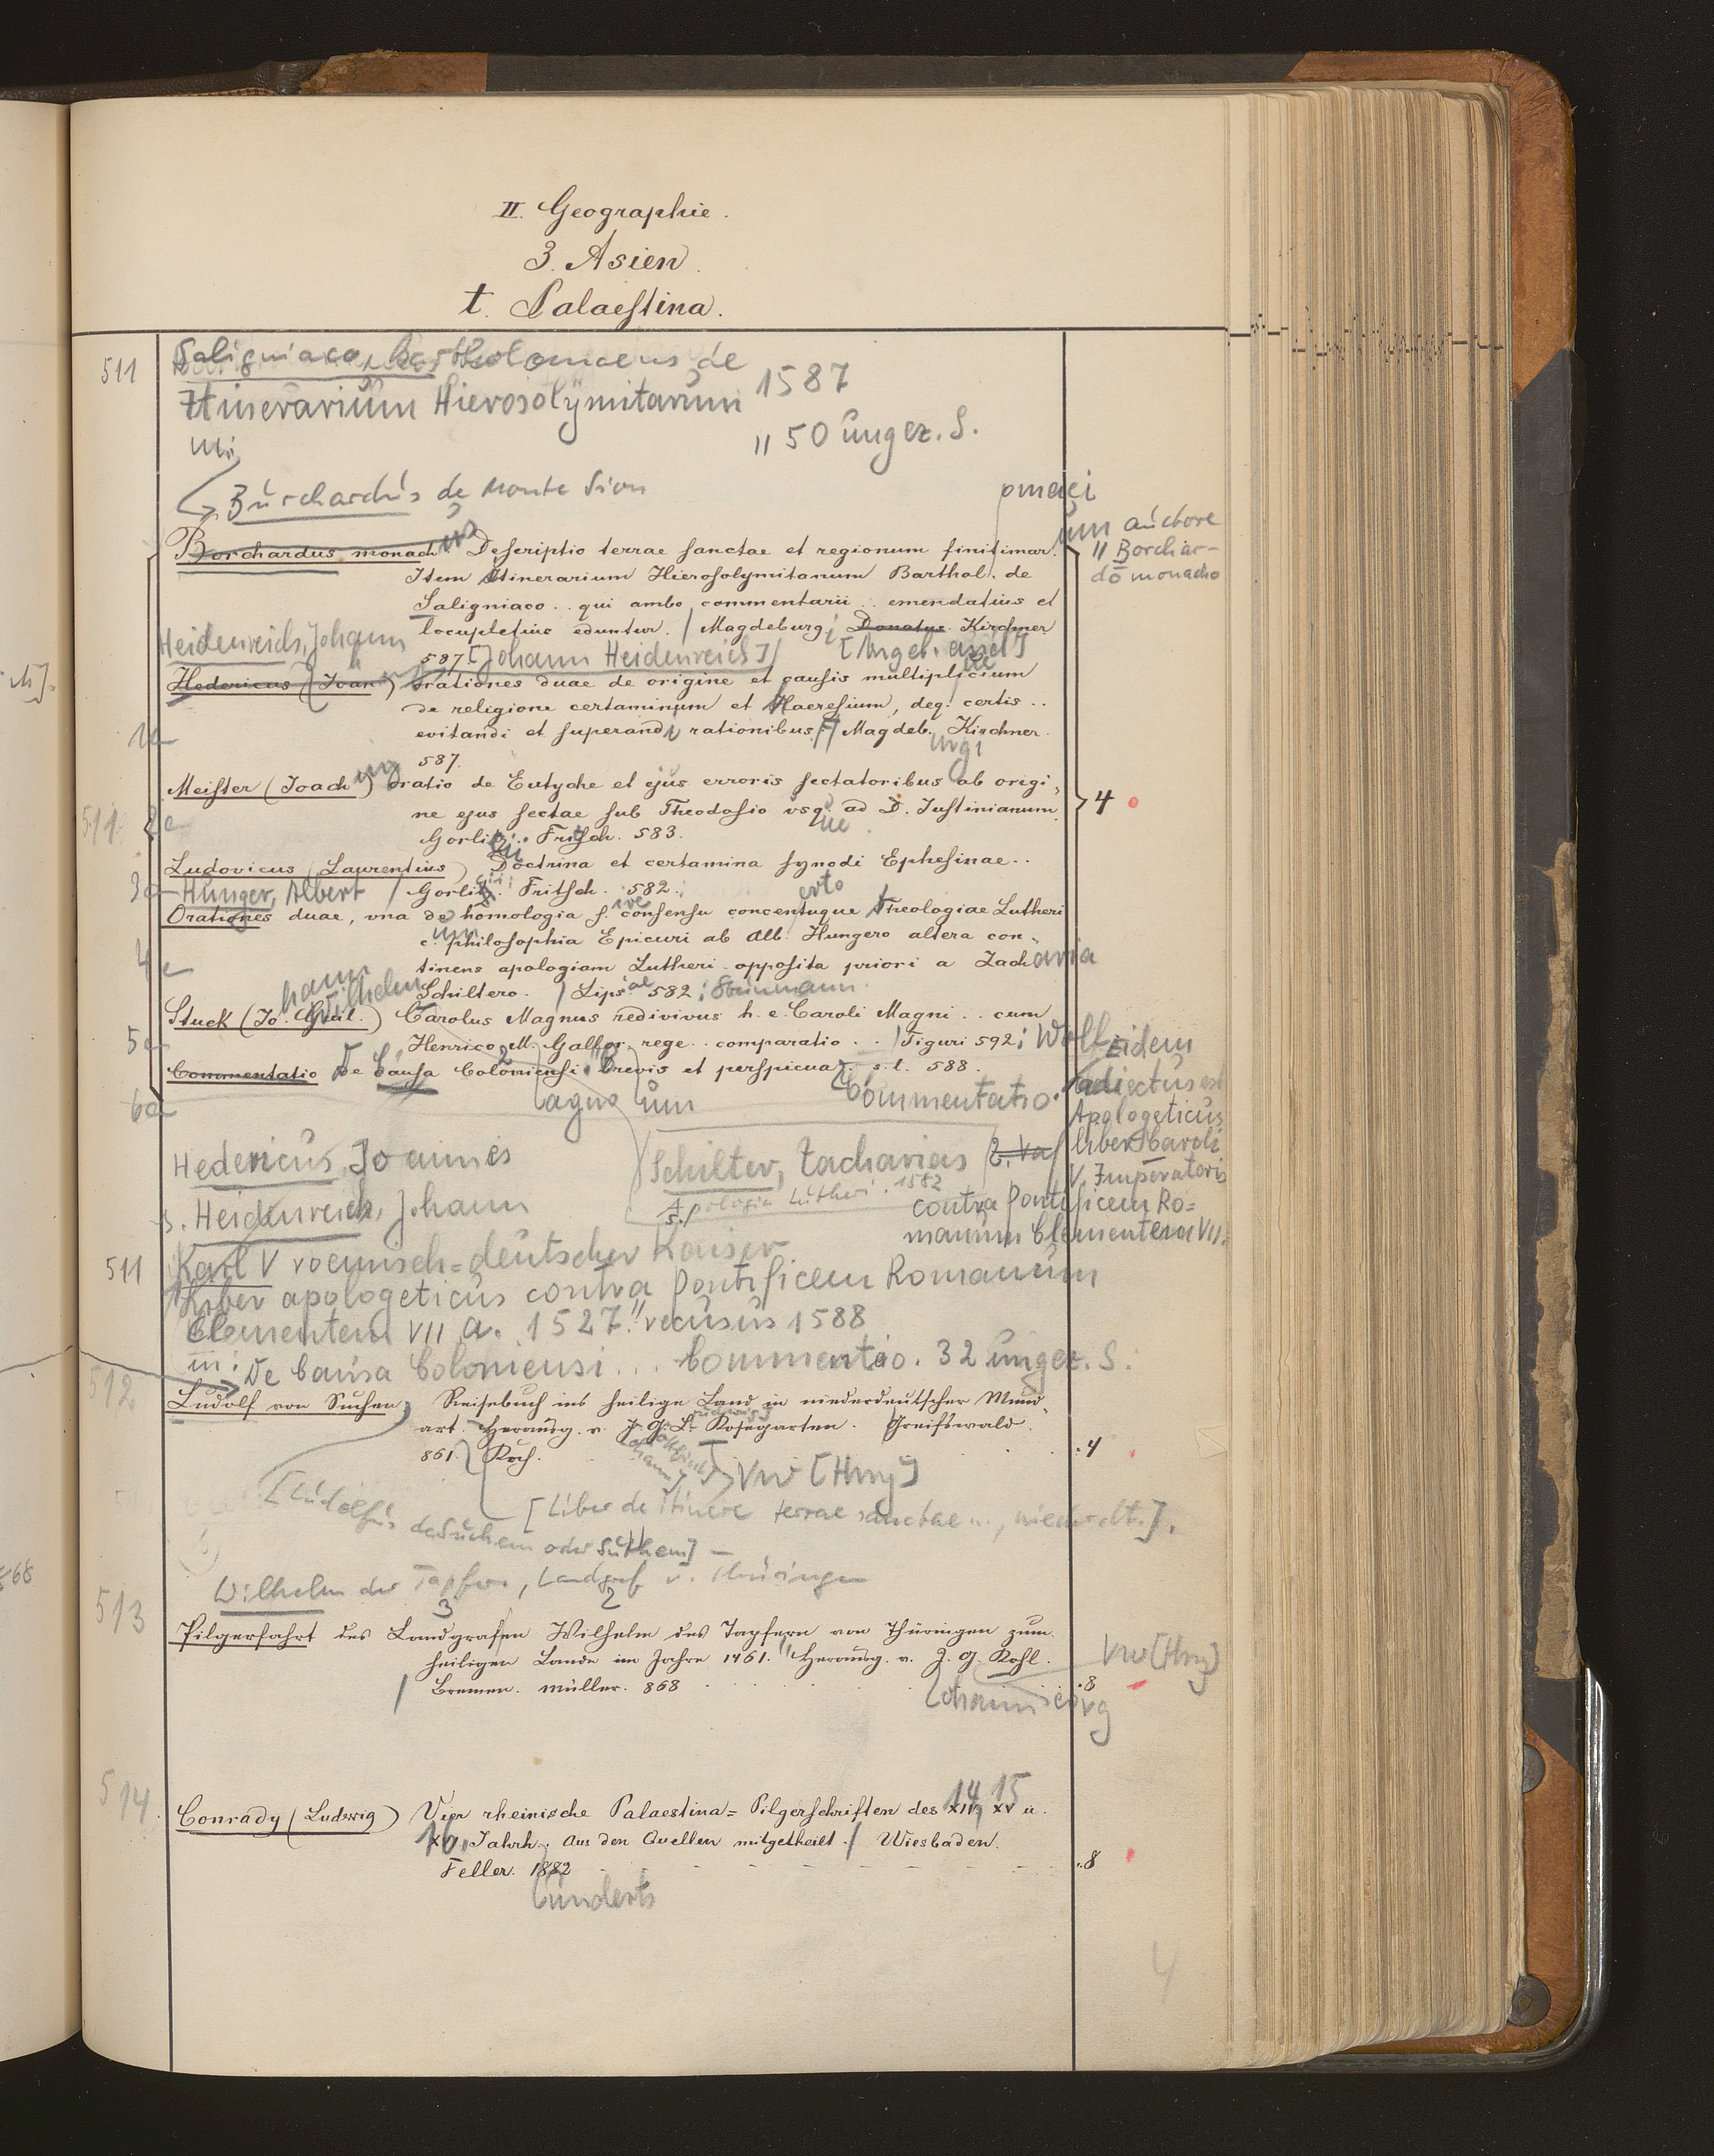 II. Geographie.
3. Asien.
t. Palaestina.
511 Saligniaco, Bartholomaeus de
Itinerarium Hierosolymitanum 1587
in: " 50 ungez. S.
Burchardus de Monte Sion
Borchardus monach Descriptio terrae sanctae et regionum finitimar.
um auctore
" Borchar-
do monacho
Item Itinerarium Hierosolymitanum Barthol. de
Saligniaco .. qui ambo commentarii .. emendatius et
locupletius eduntur. / Magdeburg; Donatus Kirchner
Heidenreich, Johann
587 [Johann Heidenreich]/
Hedericus (Joan) orationes duae de origine et causis multiplicium
de religione certaminum et Haeresium, deq. certis ..
1a evitandi et superandi rationibus. / Magdeb. Kirchner.
587. urgi
Meister (Joach) oratio de Eutyche et ejus erroris sectatoribus ab origi-
511 2a ne ejus sectae sub Theodosio vsq. ad D. Justinianum. 4
Gorlitz. Fritsch. 583.
Ludovicus (Laurentius) Doctrina et certamina synodi Ephesinae ..
3a Hunger, Albert / Gorlitz. Fritsch. 582.
Orationes duae, vna de homologia s. consensu concentuque Theologiae Lutheri
c. philosophia Epicuri ab Alb. Hungero altera con-
4a tinens apologiam Lutheri opposita priori a Zacharia
Schiltero. / Lips. 582; Steinmann.
hann Wilhelm
Stuck (Jo. Guil.) Carolus Magnus redivivus h. e. Caroli Magni .. cum
5a Henrico M. Gallor. rege .. comparatio .. / Tiguri 592; Wolf
Commentatio De Causa Coloniensi brevis et perspicua. s. l. 588.
6a agno um Commentatio.
Eidem
adiectus est
Apologeticus
liber Caroli
V. Imperatoris
contra Pontificem Ro-
manum Clementem VII.
Hedericus, Joannes
s. Heidenreich, Johann
Schilter, Zacharias
Apologia Lutheri. 1582
511 Karl V roemisch-deutscher Kaiser
Liber apologeticus contra Pontificem Romanum
Clementem VII a. 1527." recusus 1588
in: De Causa Coloniensi ... Commentatio. 32 ungez. S.
512 Ludolf von Suchen, Reisebuch ins heilige Land in niederdeutscher Mund-
art. Herausg. v. J. G. L. Kosegarten. Greifswald.
861. Koch. .4
VW [Hmg]
[Liber de itinere terrae sanctae ..., niederdt.].
[Ludolfus de Suchem oder Suthem] –
Wilhelm der Tapfere, Landgraf v. Thüringen
513 Pilgerfahrt des Landgrafen Wilhelm des Tapfern von Thüringen zum
heiligen Lande im Jahre 1461. Herausg. v. J. G. Kohl. VW [Hmg]
Bremen. Müller. 868 .8
ohann eorg
514 Conrady (Ludwig) Vier rheinische Palaestina=Pilgerschriften des XIV, XV u. 14 15
XVI. Jahrh. Aus den Quellen mitgetheilt. / Wiesbaden.
16.
Feller. 1882 .8
underts
4